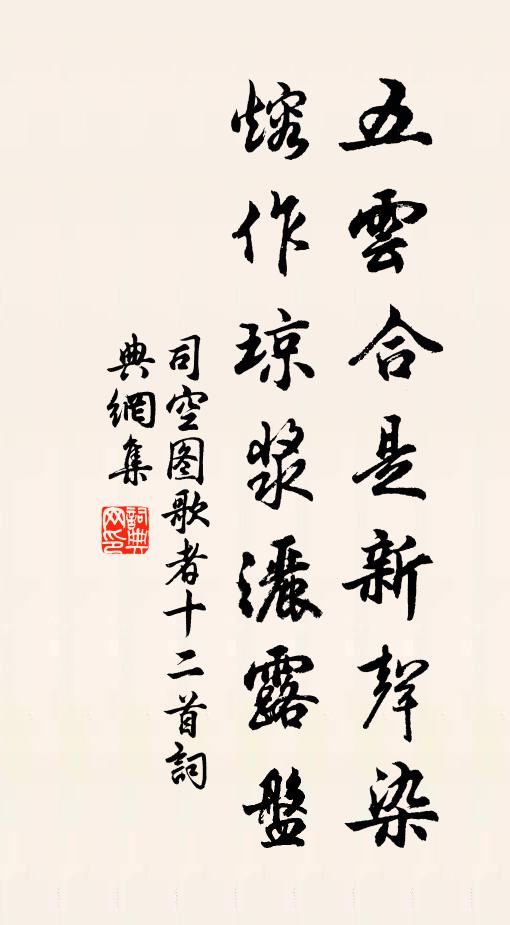 五雲合是新聲染
熔作琼漿灑露盤
司空图歌者十二首詞
典網集
詞典
网印